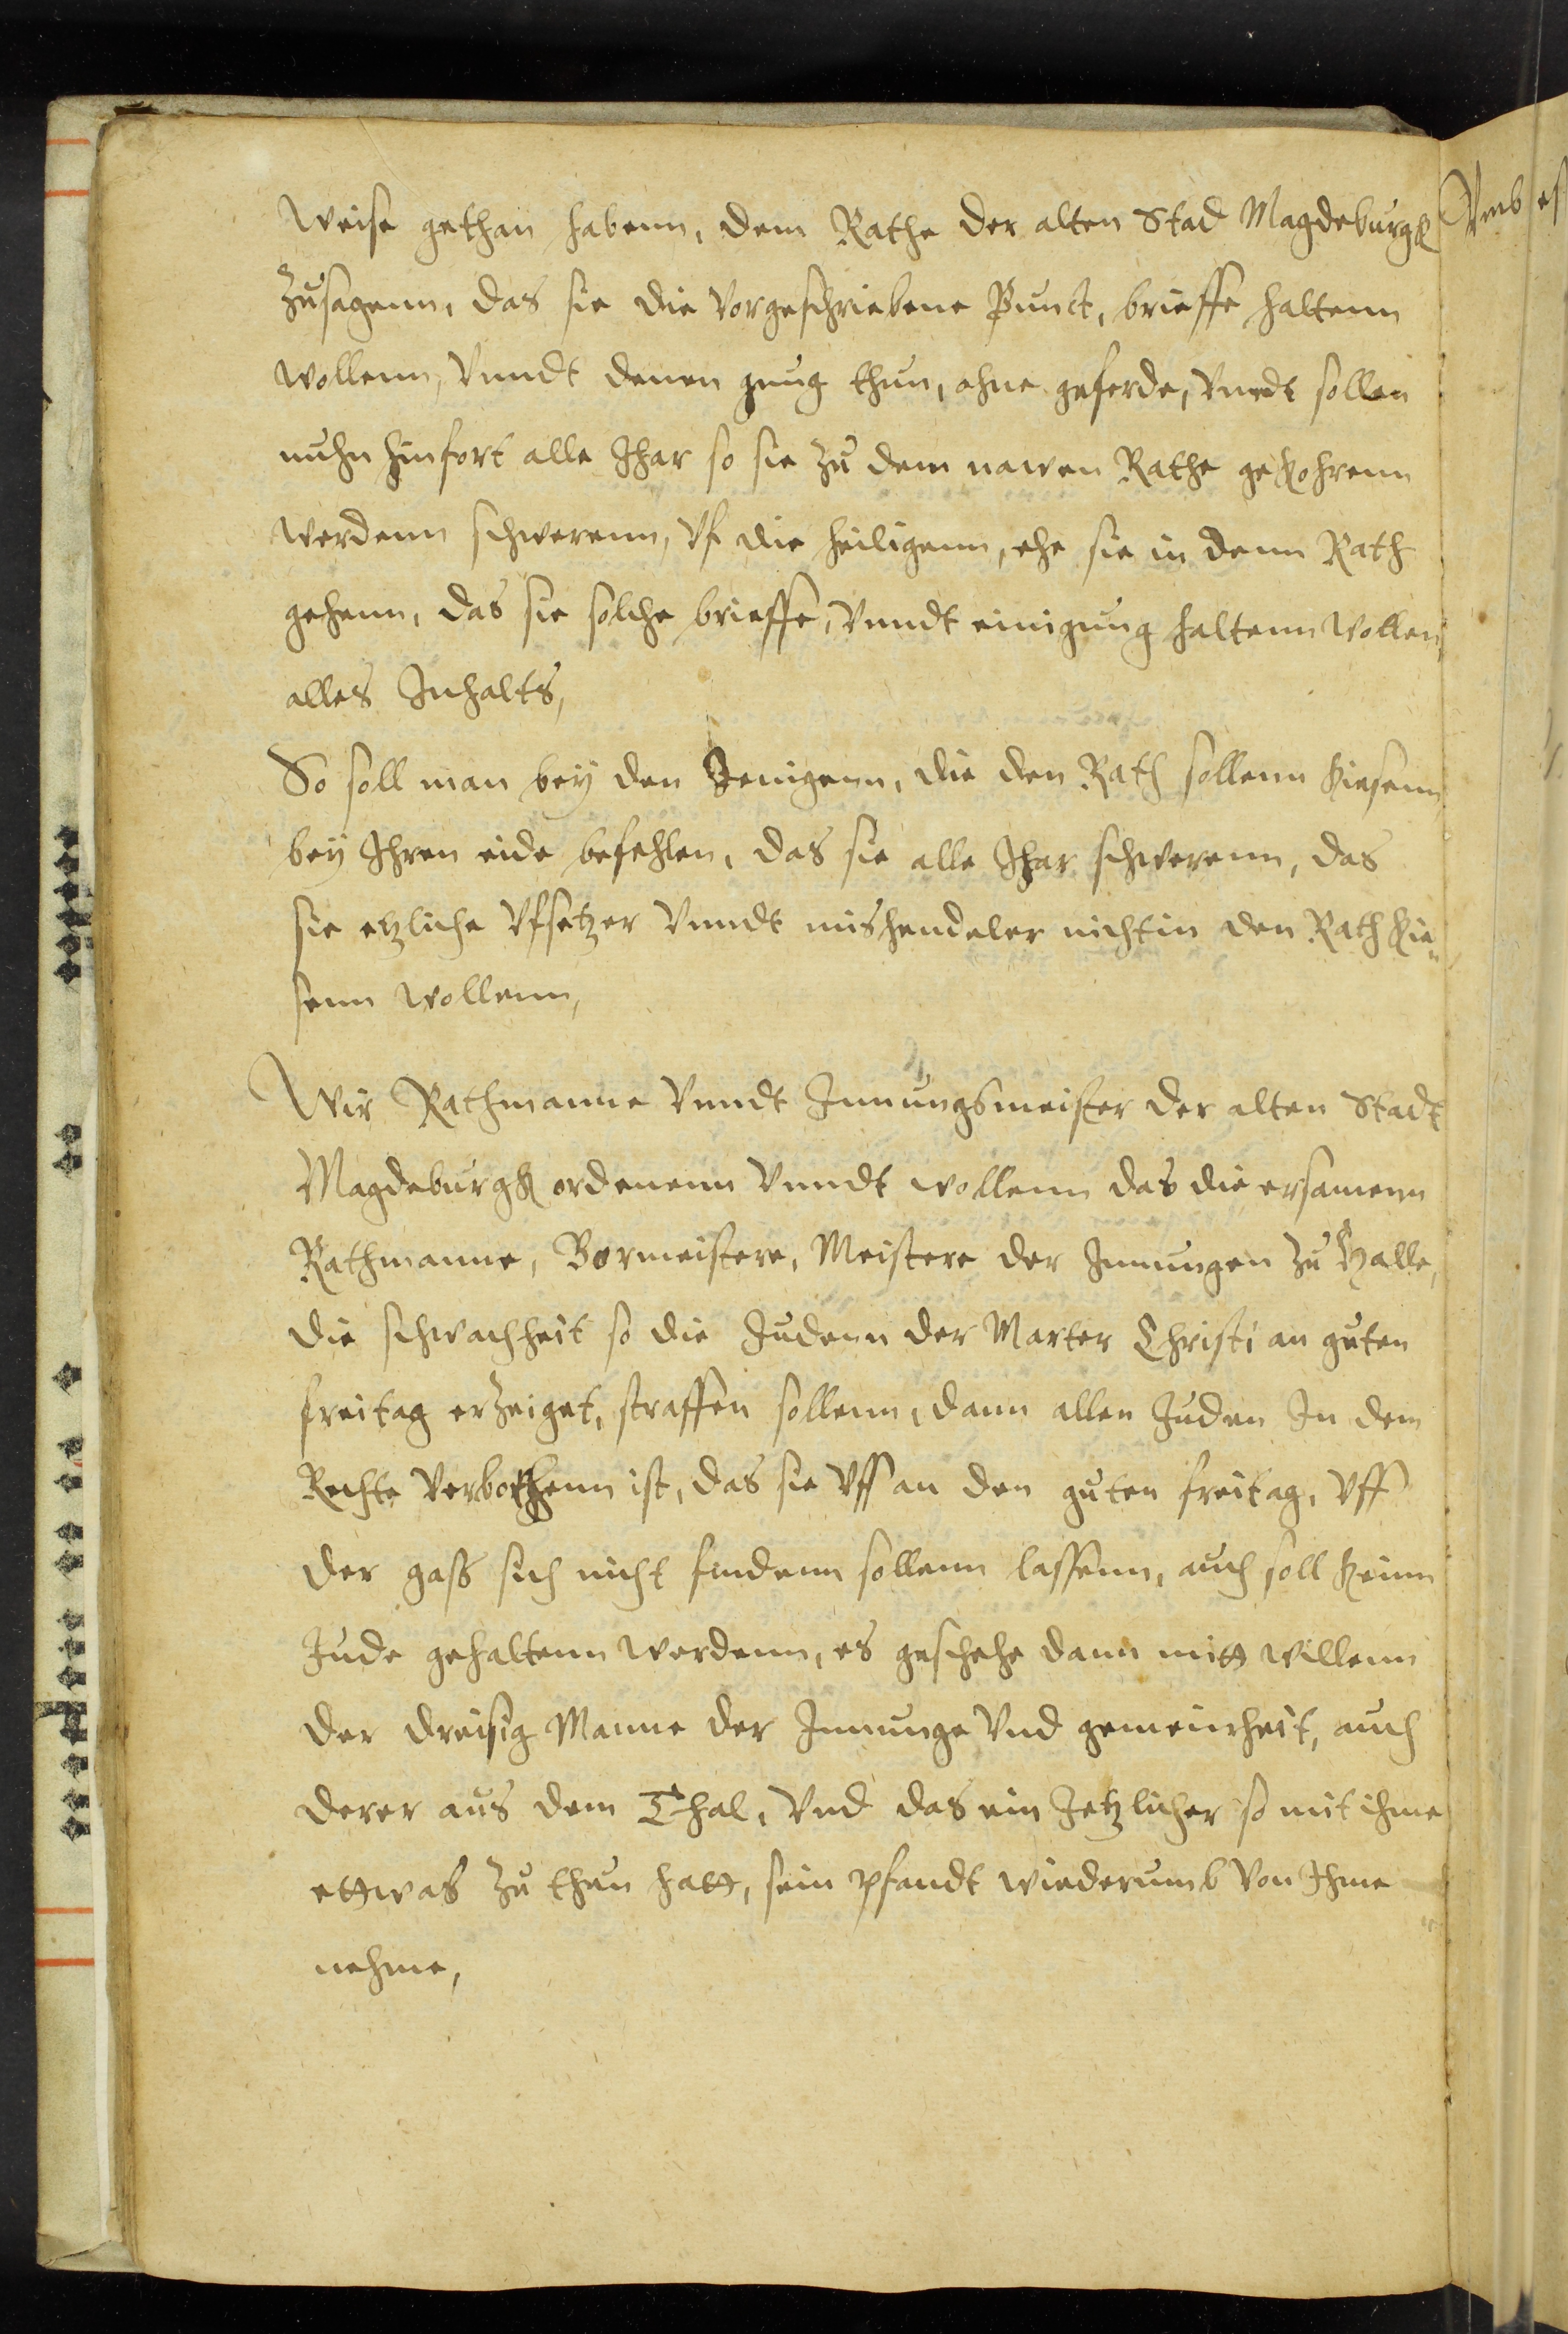 Weise gethan habenn, dem Rathe der alten Stad Magdeburgk
Zusagenn, das sie die Vorgeschriebene Punct, brieffe haltenn
wollenn, Vnndt denen gnug thun, ohne geferde, Vnndt sollen
nuhn hinfort alle Ihar so sie zu dem newen Rathe gekohrenn
werdenn schwerenn, Vf die heiligenn, ehe sie in denn Rath
gehenn, das sie solche brieffe, Vnndt einigung haltenn wollen,
alles Inhalts,
So soll man bey den Jenigenn, die den Rath sollenn kiesenn
bey Ihren eide befehlen, das sie alle Ihar schwerenn, das
sie etzliche Vfsetzer Vnndt mishendeler nicht in den Rath kie„
senn wollenn,
Wir Rathmanne Vnndt Innungsmeister der alten Stadt
Magdeburgk ordenenn Vnndt wollenn das die ersamenn
Rathmanne, Bormeistere, Meistere der Innungen zu Halle,
die schwachheit so die Judenn der Marter Christi an guten
freitag erzeiget, straffen sollenn, dann allen Juden In dem
Rechte Verbothenn ist, das sie Vff an den guten freitag, Vff
der gass sich nicht findenn sollenn lassenn, auch soll keinn
Jude gehaltenn werdenn, es geschehe dann mitt willenn
der dreisig Manne der Innunge Vnd gemeinheit, auch
derer aus dem Thal, Vnd das ein Jetzlicher so mit ihme
ettwas zu thun hatt, sein pfandt wiederumb Von Ihme
nehme,
Vmb es